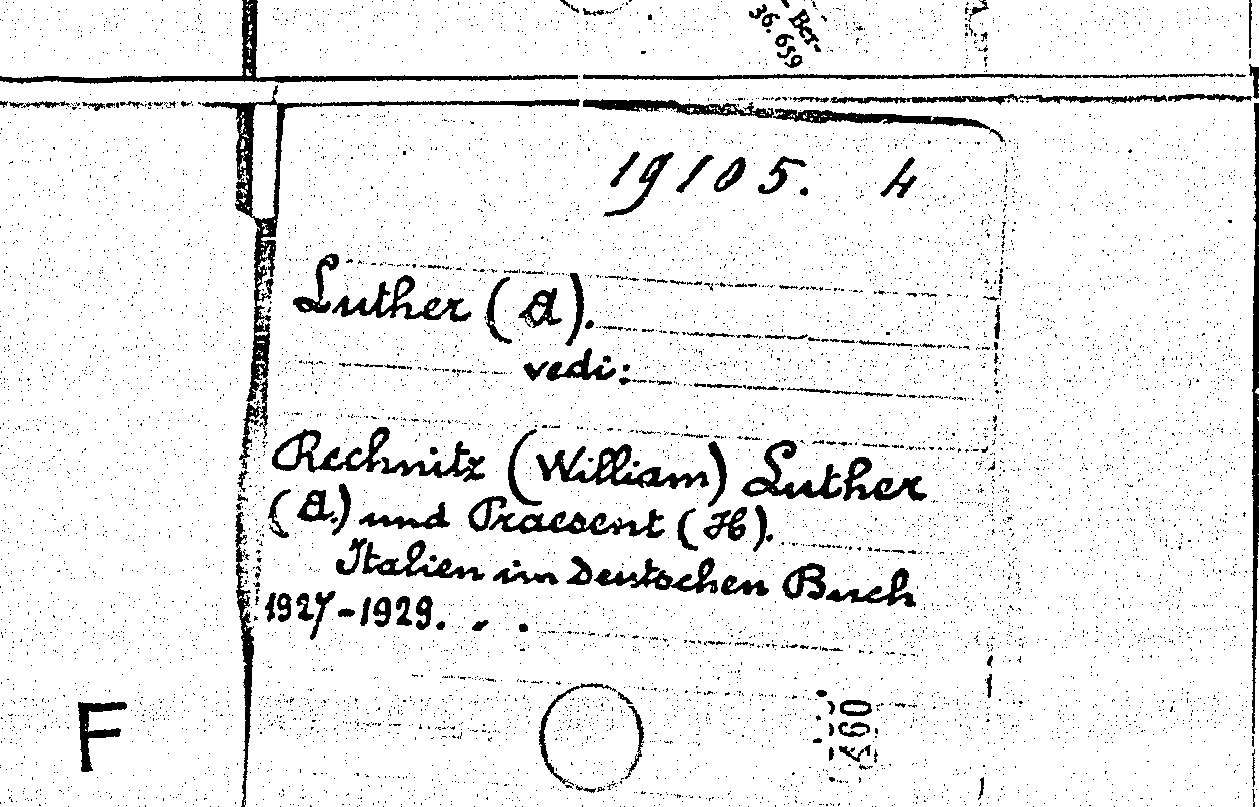 - Ber-
36. 659
19105. 4
Luther (A).
vedi:
Rechnitz (William) Luther
(A.) und Praesent (H).
Italien im Deutschen Buch
1927-1929. . .
F